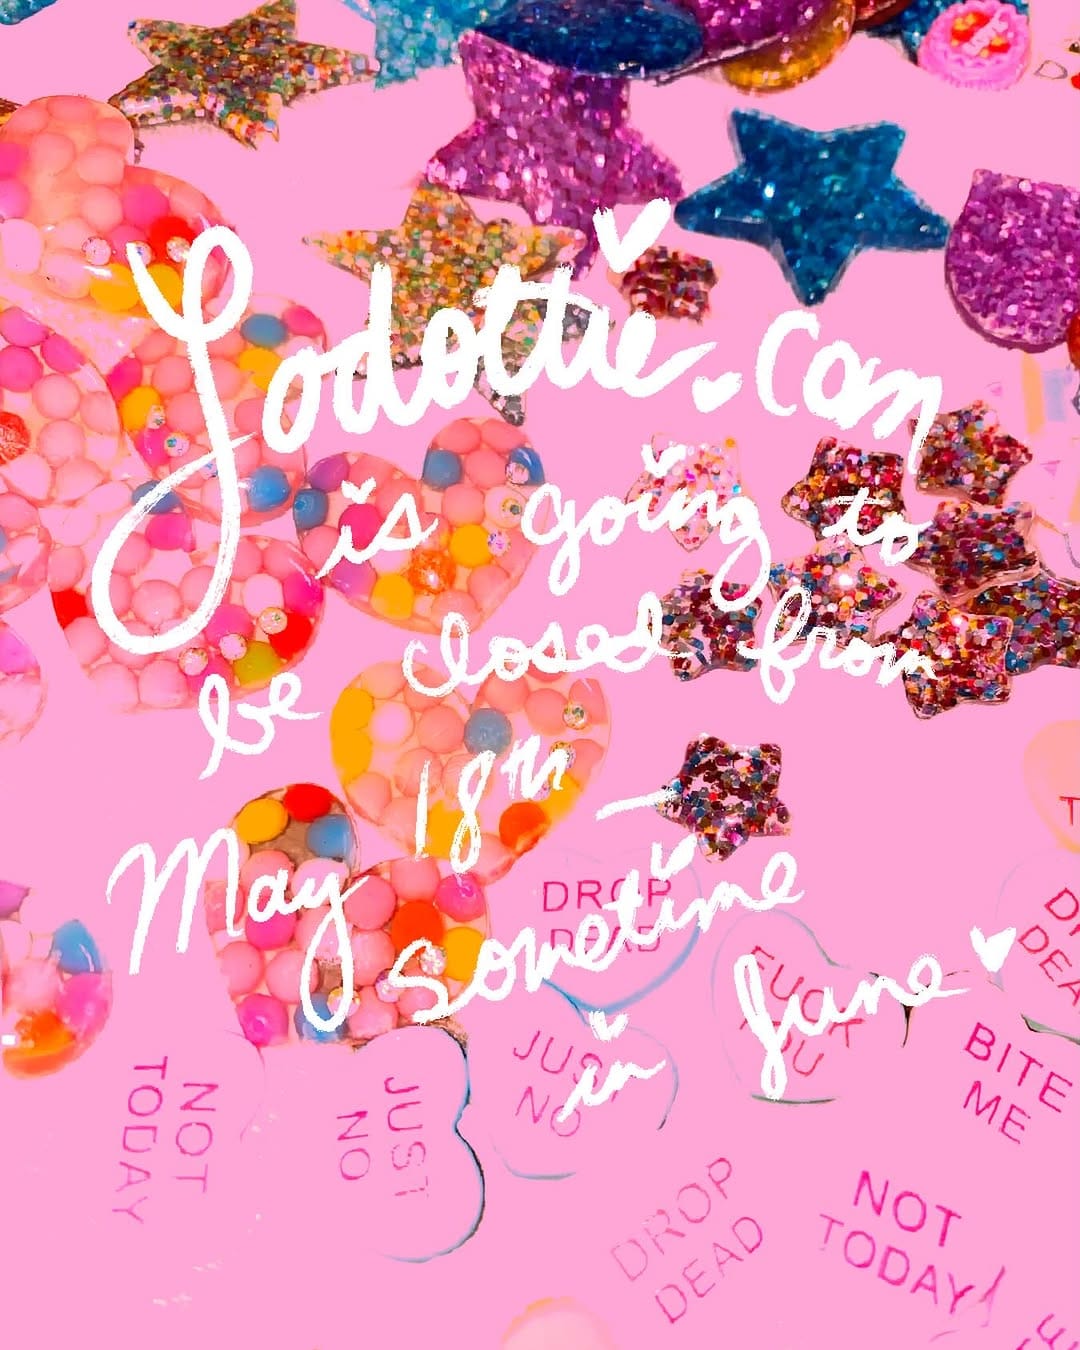 Lodottie.com
is going to
be closed from
May 18th -
sometime
in June
DROP
DEAD
FUCK
YOU
DEAD
BITE
ME
JUST
NO
NOT
TODAY
JUST
NO
DROP
DEAD
NOT
TODAY